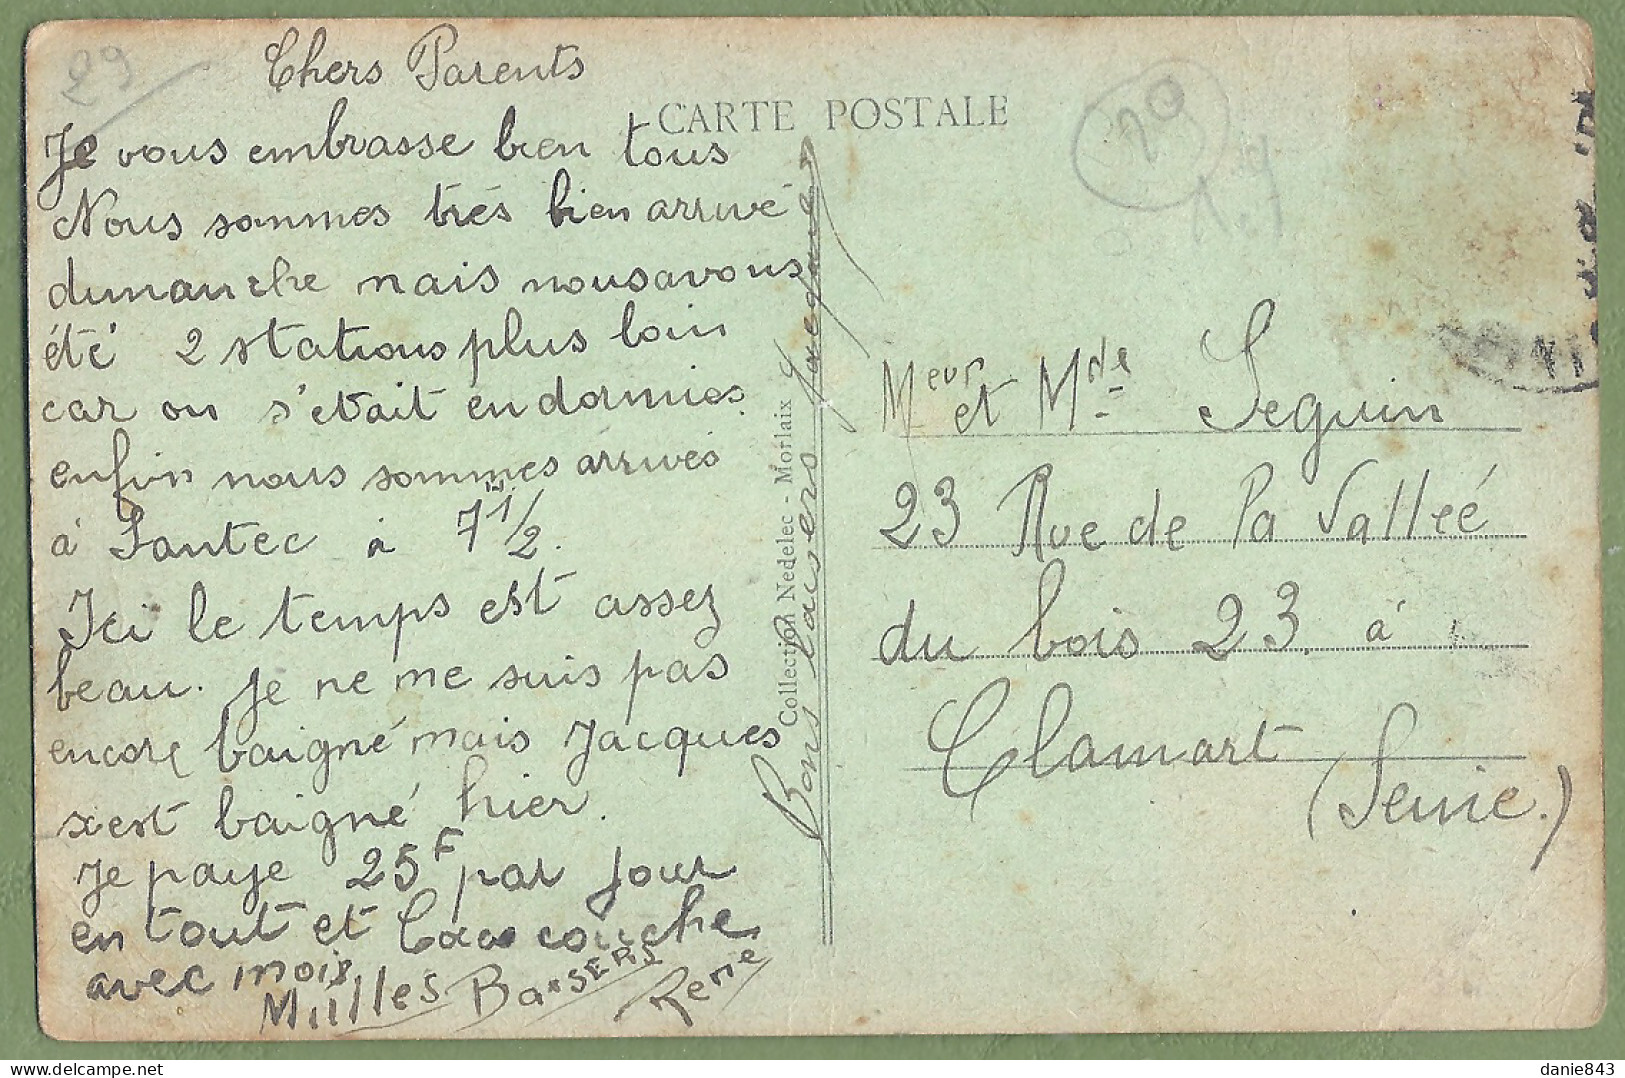 29
Chers Parents
CARTE POSTALE
Je vous embrasse bien tous
Nous sommes très bien arrivé
dimanche mais nous avous
été 2 stations plus loin
car on s'etait endormies.
enfin nous sommes arrivés
à Santec à 7 1/2.
Ici le temps est assez
beau. Je ne me suis pas
encore baigné mais Jacques
s'est baigné hier.
Je paye 25F par jour
en tout et couche
avec moi.
Milles Baisers
René
Bons baisers Jacques
Collection Nedelec - Morlaix
Meur et Mde Seguin
23 Rue de la Valleé
du bois 23. à
Clamart
(Seine.)
danie843